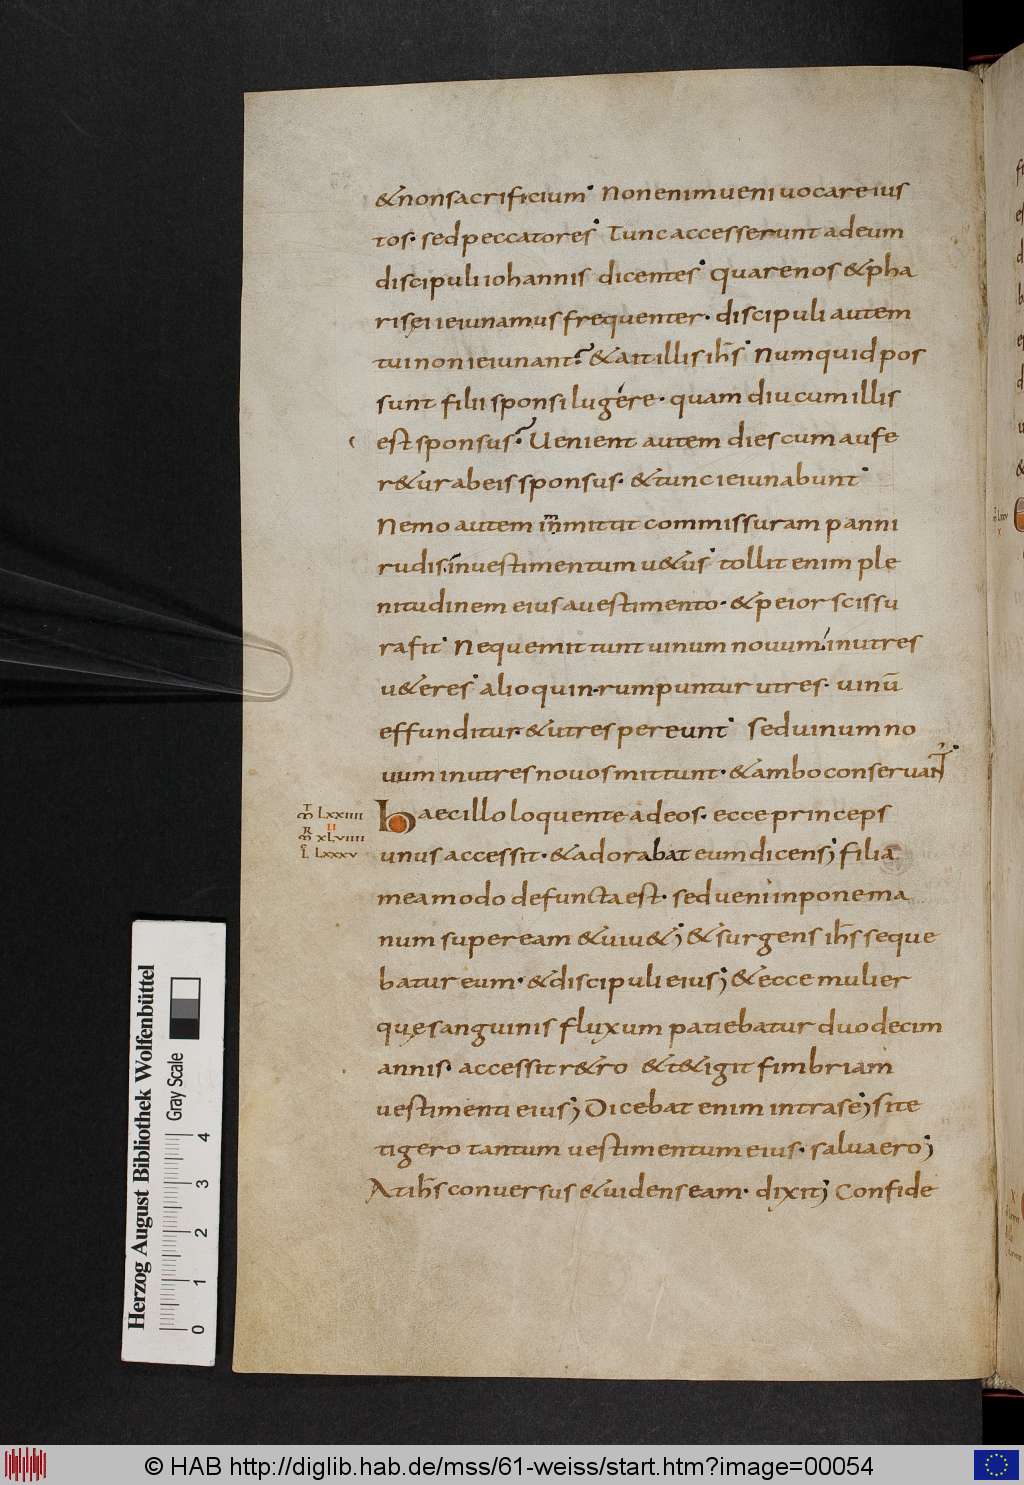 & non sacrificium· Non enim ueni uocare ius
tos· sed peccatores· Tunc accesserunt ad eum
discipuli iohannis dicentes· quare nos & pha
risęi ieiunamus frequenter· discipuli autem
tui non ieiunant? & ait illis ih̅s· Numquid pos
sunt filii sponsi lugére· quam diu cum illis
est sponsus? Uenient autem dies cum aufe
r&ur ab eis sponsus· & tunc ieiunabunt·
Nemo autem inmittit commissuram panni
rudis in uestimentum u&us· tollit enim ple
nitudinem eius a uestimento· & peior scissu
ra fit· Neque mittunt uinum nouum in utres
u&eres· alioquin· rumpuntur utres· uinū
effunditur· & utres pereunt· sed uinum no
uum in utres nouos mittunt· & ambo conseruant·
T M LXXIIII
II
R M XLVIIII
L LXXXV
haec illo loquente ad eos· ecce princeps
unus accessit· & adorabat eum dicens; filia
mea modo defuncta est· sed ueni inpone ma
num super eam & uiu&; & surgens ih̅s seque
batur eum· & discipuli eius; & ecce mulier
quę sanguinis fluxum patiebatur duodecim
annis· accessit r&ro & t&igit fimbriam
uestimenti eius; Dicebat enim intra se; si te
tigero tantum uestimentum eius· salua ero;
At ih̅s conuersus & uidens eam· dixit; Confide
Herzog August Bibliothek Wolfenbüttel
Gray Scale
0 1 2 3 4
© HAB http://diglib.hab.de/mss/61-weiss/start.htm?image=00054